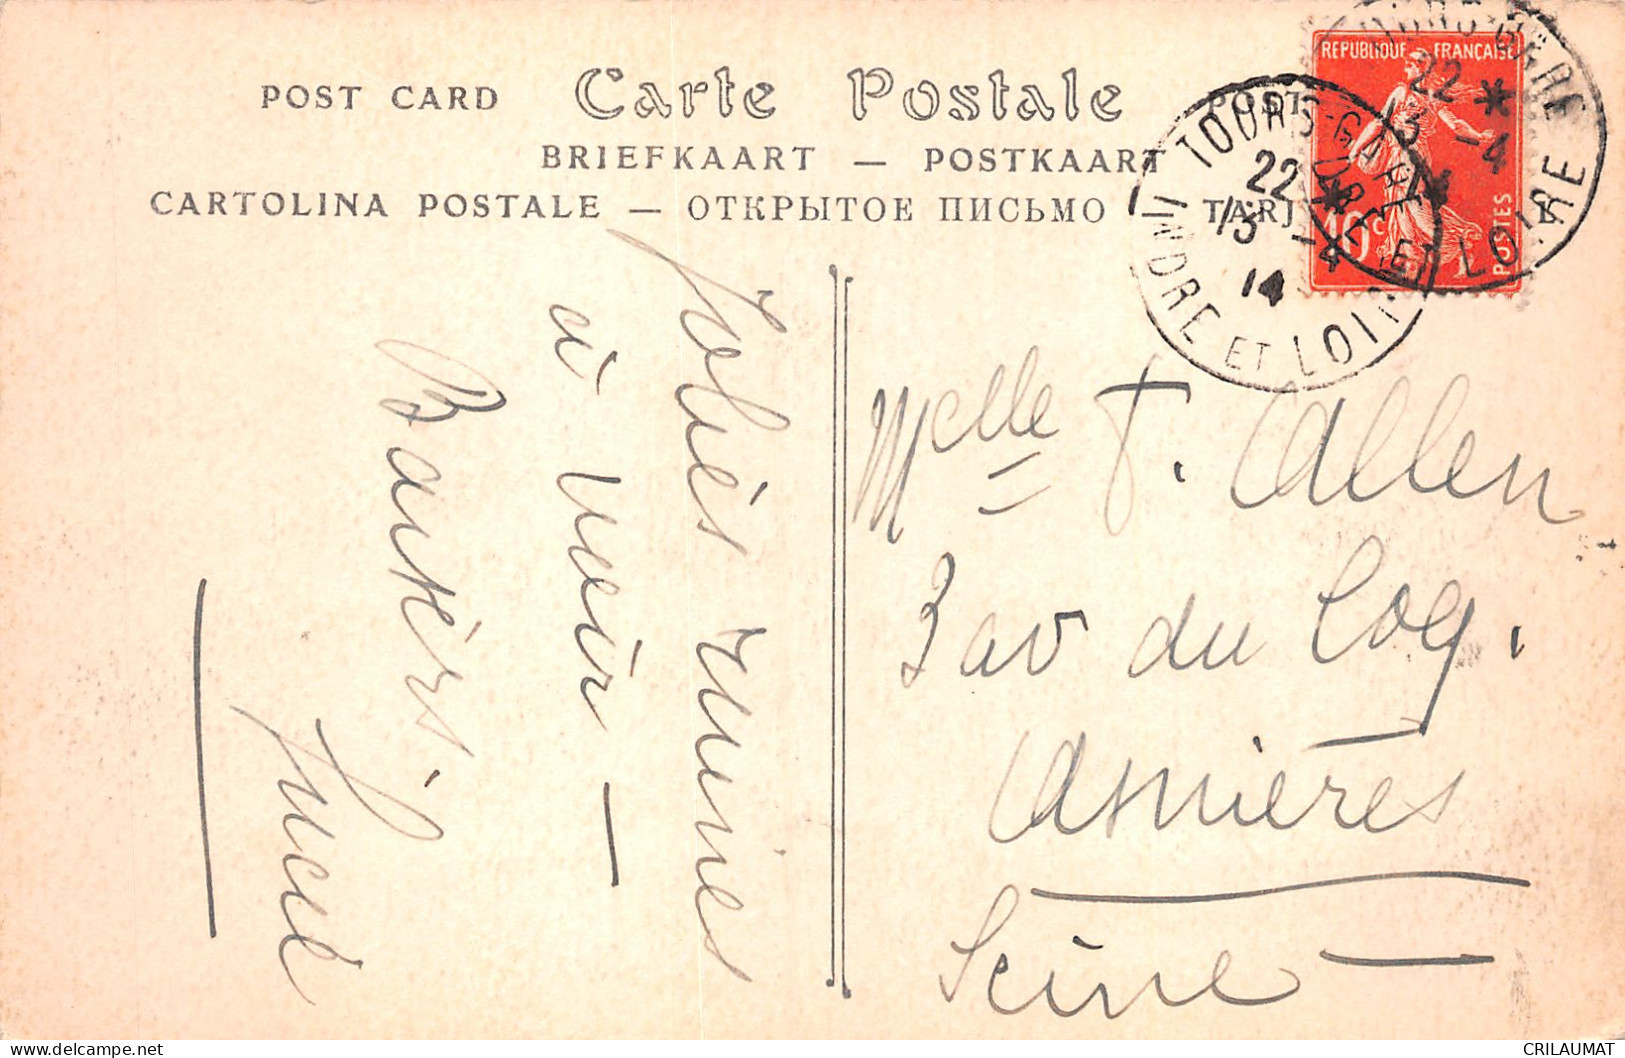 POST CARD Carte Postale POST
BRIEFKAART — POSTKAART
CARTOLINA POSTALE — ОТКРЫТОЕ ПИСЬМО — TARJ
REPUBLIQUE FRANÇAISE
10c
POSTES
TOURS-GARE
22 *
13 -4
14
INDRE ET LOIRE
22 *
13 -4
14
INDRE ET LOIRE
Jolies ruines
à voir —
Baisers
Lucie
Melle F. Allen
3 av du Coq.
Asnières
Seine —
CRILAUMAT